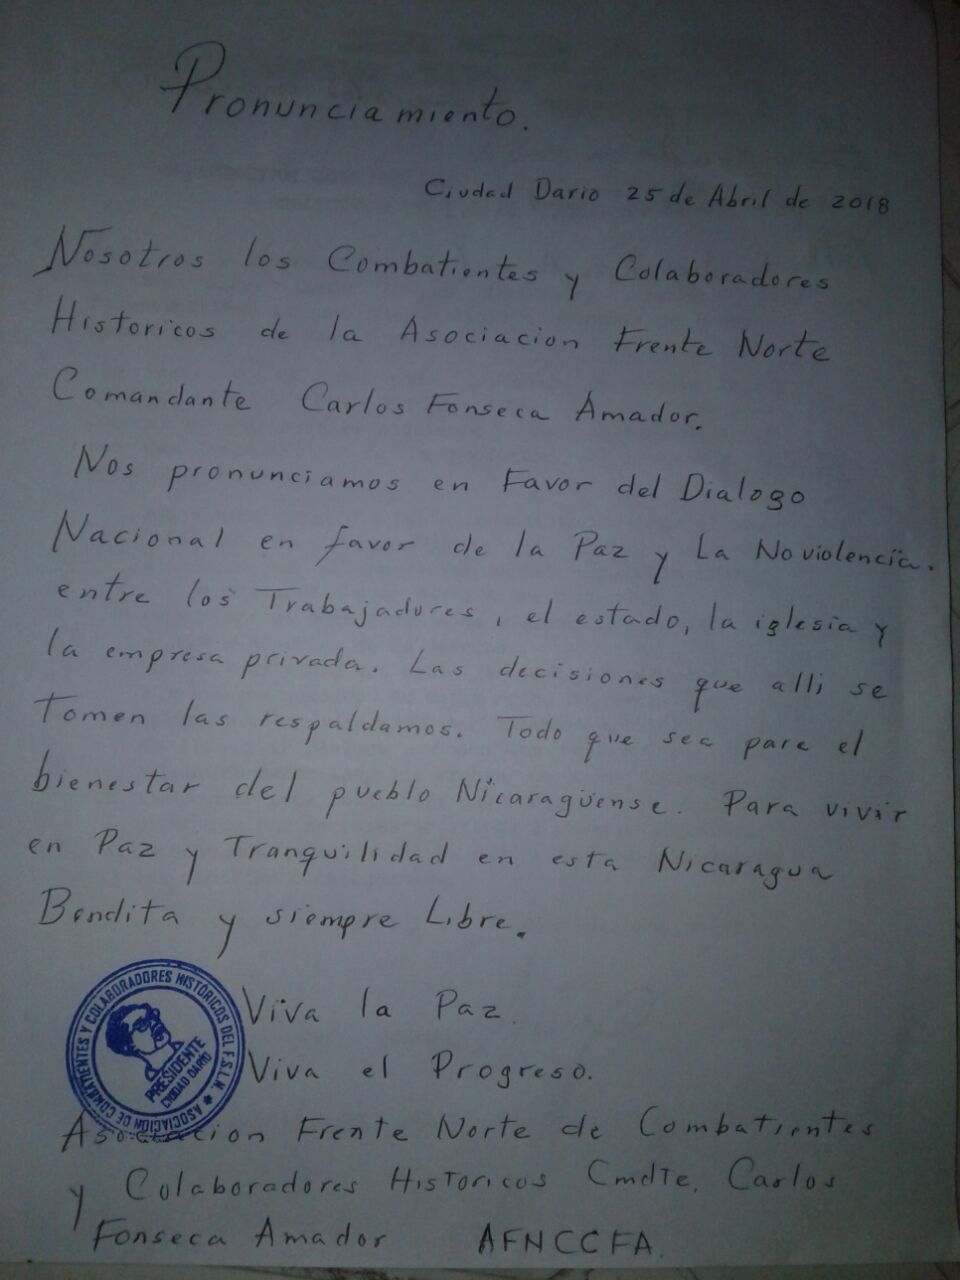 Pronunciamiento.
Ciudad Dario 25 de Abril de 2018
Nosotros los Combatientes y Colaboradores
Historicos de la Asociacion Frente Norte
Comandante Carlos Fonseca Amador.
Nos pronunciamos en Favor del Dialogo
Nacional en favor de la Paz y La No violencia.
entre los Trabajadores, el estado, la iglesia y
la empresa privada. Las decisiones que alli se
Tomen las respaldamos. Todo que sea para el
bienestar del pueblo Nicaragüense. Para vivir
en Paz y Tranquilidad en esta Nicaragua
Bendita y siempre Libre.
Viva la Paz.
Viva el Progreso.
ASOCIACIÓN DE COMBATIENTES Y COLABORADORES HISTÓRICOS DEL F.S.L.N. ★
PRESIDENTE
CIUDAD DARIO
Asociacion Frente Norte de Combatientes
y Colaboradores Historicos Cmdte. Carlos
Fonseca Amador AFNCCFA.